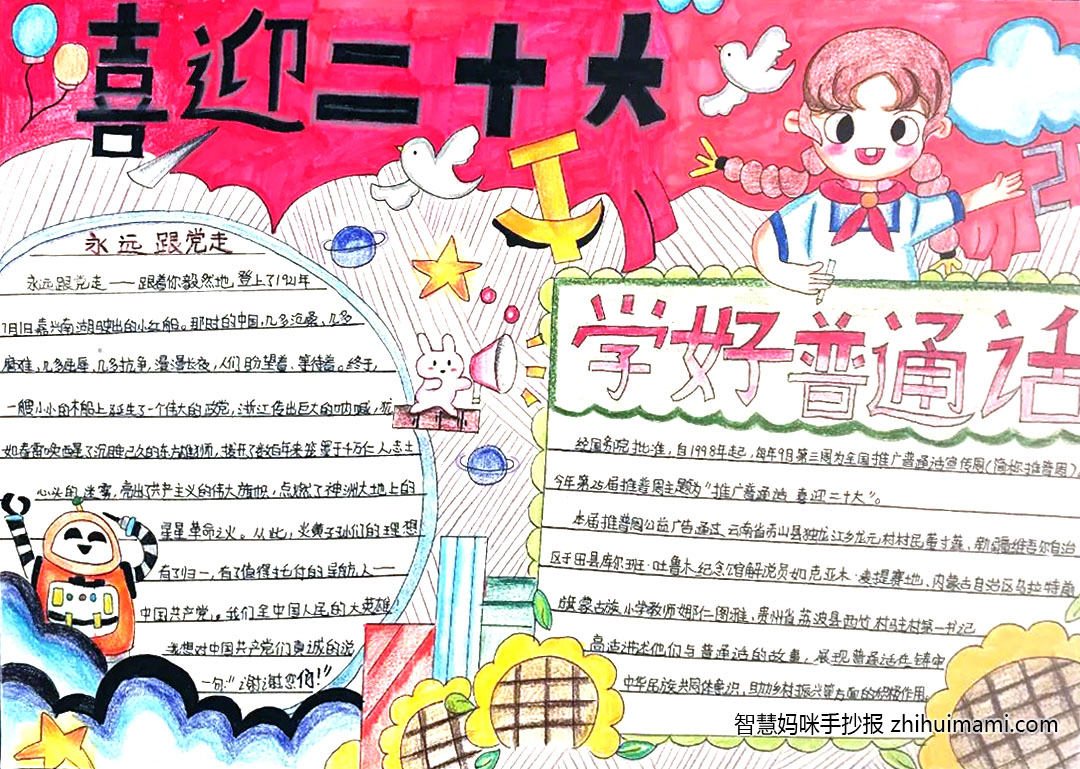 喜迎二十大
永远跟党走
永远跟党走——跟着你毅然地,登上了1921年
7月1日嘉兴南湖驶出的小红船。那时的中国,几多沧桑,几多
磨难,几多屈辱,几多抗争,漫漫长夜,人们盼望着,等待着。终于,
一艘小小的木船上诞生了一个伟大的政党,浙江传出巨大的呐喊,犹
如春雷唤醒了沉睡已久的东方雄师,拨开了数百年来笼罩于千万仁人志士
心头的迷雾,亮出了共产主义的伟大旗帜,点燃了神洲大地上的
星星革命之火。从此,炎黄子孙们的理想
有了归一,有了值得托付的导航人——
中国共产党。我们全中国人民的大英雄
我想对中国共产党们真诚的说
一句:“谢谢您们!”
学好普通话
经国务院批准,自1998年起,每年9月第三周为全国推广普通话宣传周(简称推普周)
今年第25届推普周主题为“推广普通话 喜迎二十大”。
本届推普周公益广告通过云南省贡山县独龙江乡龙元村村民,新疆维吾尔自治
区于田县库尔班·吐鲁木纪念馆解说员如克亚木·麦提赛地、内蒙古自治区乌拉特前
旗蒙古族小学教师娜仁图雅,贵州省荔波县西竹村驻村第一书记
高选讲述他们与普通话的故事,展现普通话在铸牢
中华民族共同体意识,助力乡村振兴等方面的积极作用。
智慧妈咪手抄报 zhihuimami.com